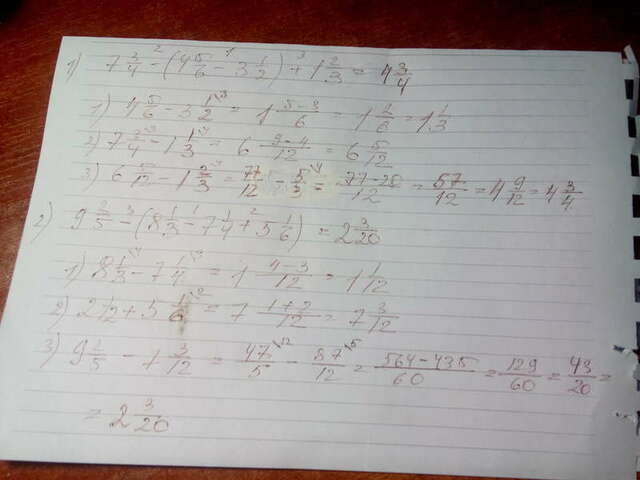 1) 7 3/4 - (4 5/6 - 3 1/2) + 1 2/3 = 4 3/4
1) 4 5/6 - 3 1/2 = 1 5-3/6 = 1 2/6 = 1 1/3
2) 7 3/4 - 1 1/3 = 6 9-4/12 = 6 5/12
3) 6 5/12 - 1 2/3 = 77/12 - 5/3 = 77-20/12 = 57/12 = 4 9/12 = 4 3/4
2) 9 2/5 - (8 1/3 - 7 1/4 + 5 1/6) = 2 3/20
1) 8 1/3 - 7 1/4 = 1 4-3/12 = 1 1/12
2) 2 1/12 + 5 1/6 = 7 1+2/12 = 7 3/12
3) 9 2/5 - 7 3/12 = 47/5 - 87/12 = 564-435/60 = 129/60 = 43/20 =
= 2 3/20